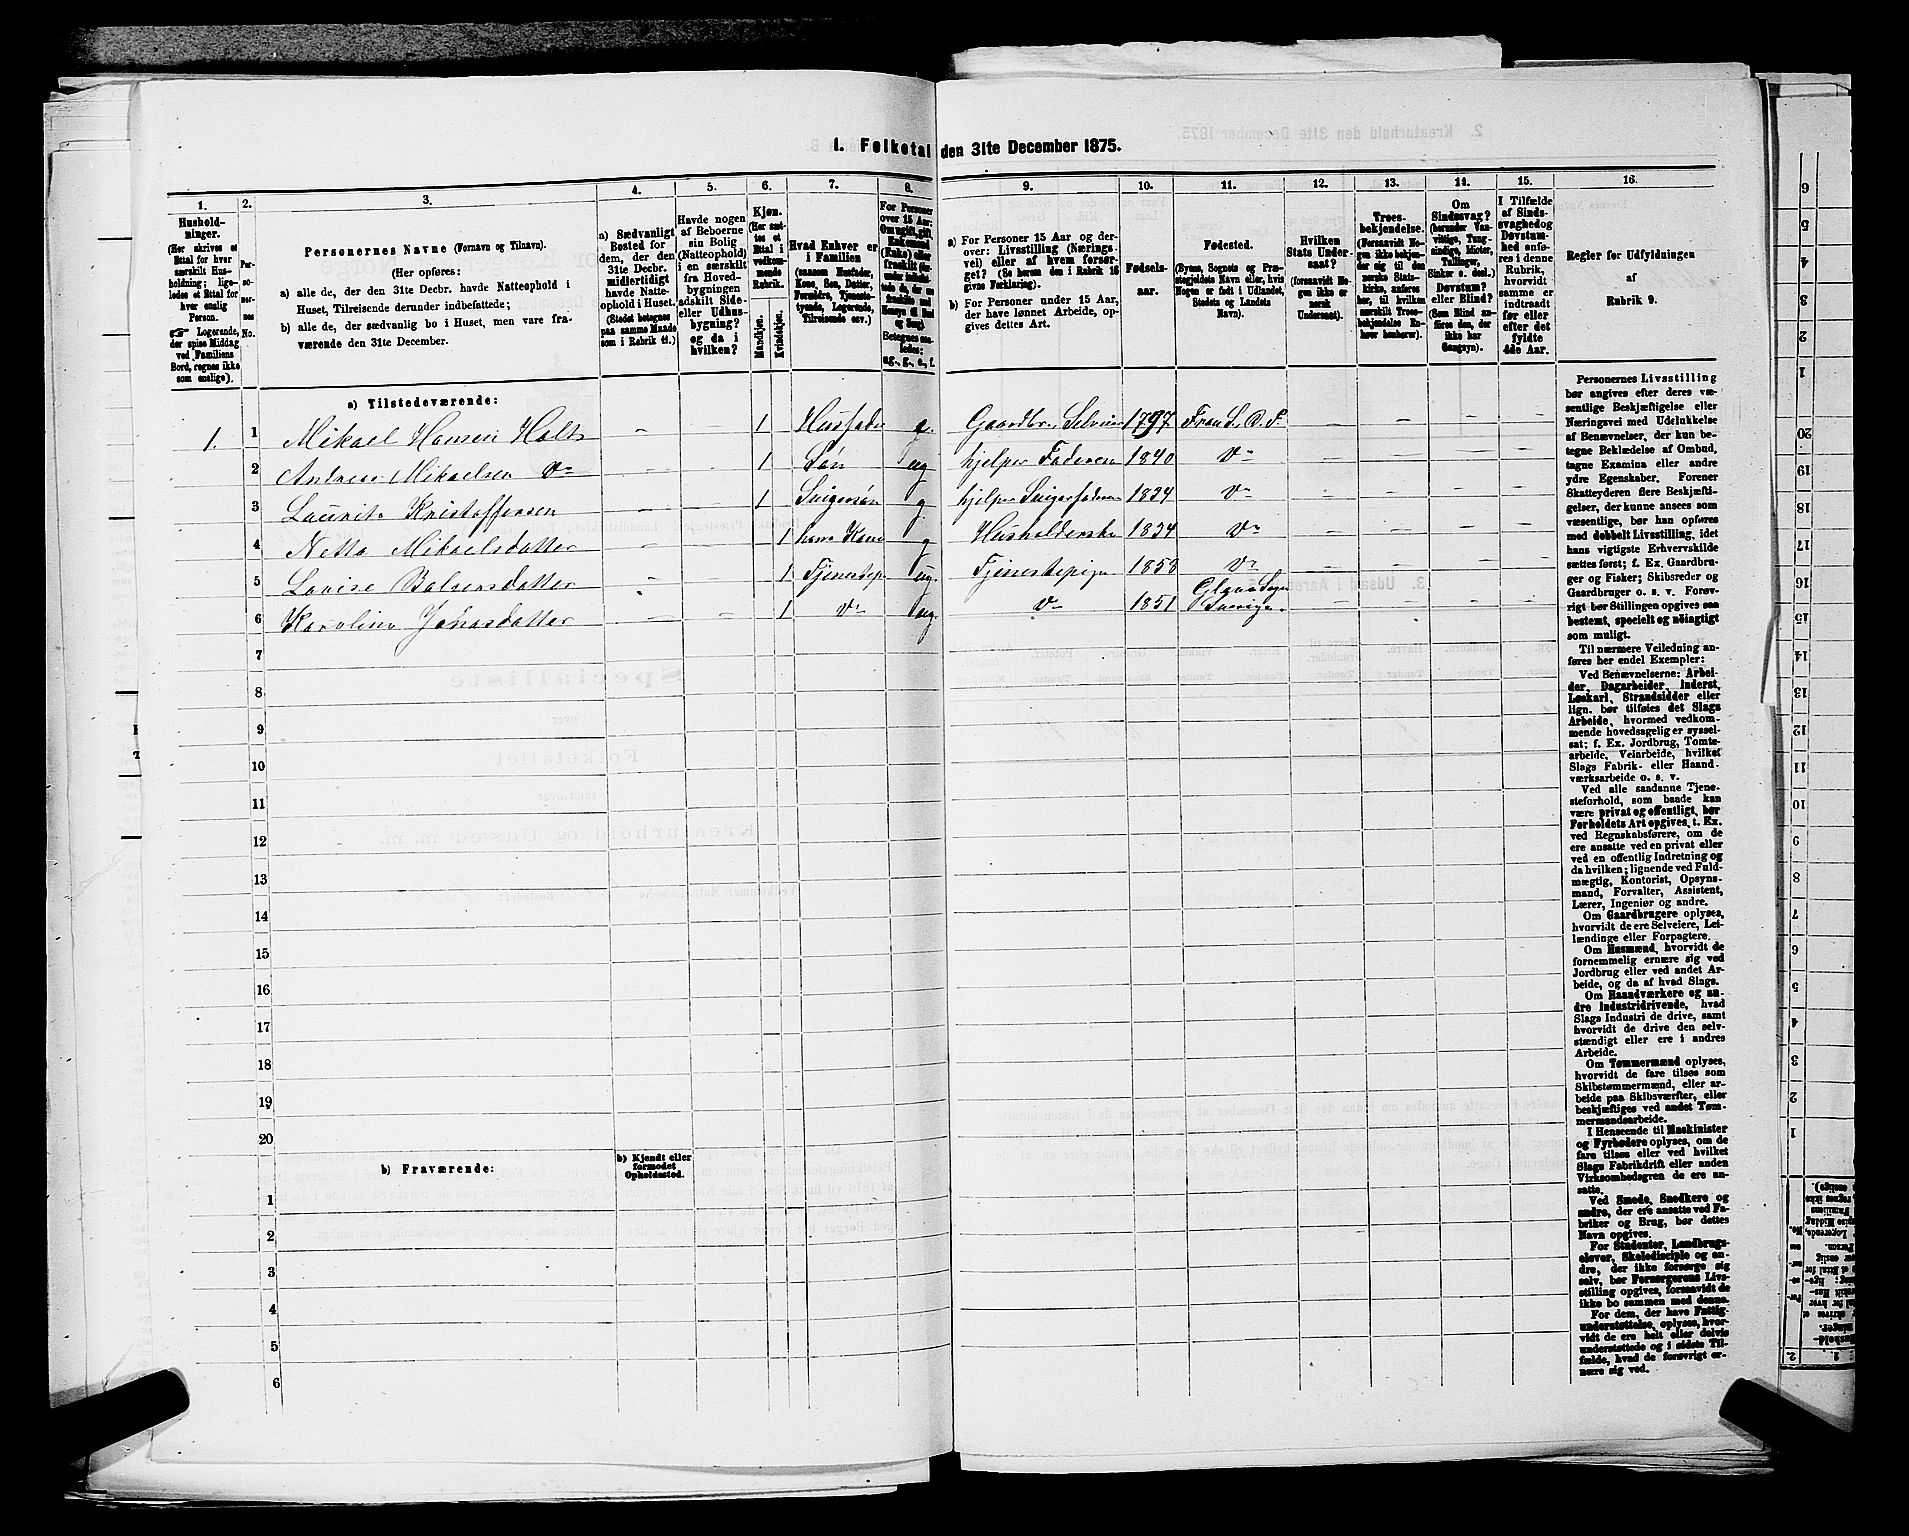 1. Folketal den 31te December 1875.
1. 2. 3. 4. 5. 6. 7. 8. 9. 10. 11. 12. 13. 14. 15. 16.
Hushold-
ninger.
(Her skrives et
Ettal for hver
særskilt Hus-
holdning; lige-
ledes et Ettal for
hver enslig
Person.
☞ Logerende,
der spise Middag
ved Familiens
Bord, regnes ikke
som enslige).
Per-
soner-
nes
No.
Personernes Navne (Fornavn og Tilnavn).
(Her opføres:
a) alle de, der den 31te Decbr. havde Natteophold i
Huset, Tilreisende derunder indbefattede;
b) alle de, der sædvanlig bo i Huset, men vare fra-
værende den 31te December.
a) Sædvanligt
Bosted for
dem, der den
31te Decbr.
midlertidigt
havde Natte-
ophold i Huset.
(Stedet betegnes
paa samme Maade
som i Rubrik 11.)
Havde nogen
af Beboerne
sin Bolig
(Natteophold)
i en særskilt
fra Hoved-
bygningen
adskilt Side-
eller Udhus-
bygning?
og da i
hvilken?
Kjøn.
(Her sæt-
tes et
Ettal i
vedkom-
mende
Rubrik.
Mandkjøn.
Kvindekjøn.
Hvad Enhver er
i Familien
(saasom Husfader,
Kone, Søn, Datter,
Forældre, Tjeneste-
tyende, Logerende,
Tilreisende osv.)
For Personer
over 15 Aar:
a) For Personer 15 Aar og der-
over: Livsstilling (Nærings-
vei) eller af hvem forsør-
get? (Se herom den i Rubrik 16
givne Forklaring).
b) For Personer under 15 Aar,
der have lønnet Arbeide, op-
gives dettes Art.
Fødsels-
aar.
Fødested.
(Byens, Sognets og Præ-
stegjeldets Navn eller, hvis
Nogen er født i Udlandet,
Stedets og Landets
Navn).
Hvilken
Stats Under-
saat?
(forsaavidt No-
gen ikke er
norsk
Undersaat).
Troes-
bekjendelse.
(Forsaavidt No-
gen ikke bekjen-
der sig til den
norske Stats-
kirke, anføres
her, til hvilken
særskilt Troes-
bekjendelse En-
hver henhører).
Om
Sindssvag?
(herunder Van-
vittige, Tung-
sindige, Idioter,
Tullinger,
Sinker o. desl.)
Døvstum?
eller Blind?
(Som Blind an-
føres den, der
ikke har
Gangsyn).
I Tilfælde
af Sinds-
svaghed og
Døvstum-
hed anfø-
res i denne
Rubrik,
hvorvidt
samme er
indtraadt
før eller
efter det
fyldte
4de Aar.
Regler for Udfyldningen
af
Rubrik 9.
a) Tilstedeværende:
1. 1 Mikael Hansen Holt - - 1 Husfader g. Gaardbr. Selveier 1797
2 Andreas Mikaelsen - - 1 Søn ug hjelper Faderen 1840
3 Laurits Kristoffersen - - 1 Svigersøn g. hjelper Svigerfaderen 1834
4 Netta Mikaelsdatter - - 1 hans Kone g Husholderske 1834
5 Lovise - - 1 Tjenestep. ug. Tjenestepige 1853
6 Karoline Jonasdatter - - 1 ug. 1851 Sverige.
7
8
9
10
11
12
13
14
15
16
17
18
19
20
b) Fraværende:
b) Kjendt eller
formodet
Opholdssted.
1
2
3
4
5
6
Personernes Livsstilling
bør angives efter deres væ-
sentlige Beskjæftigelse eller
Næringsvei med Udelukkelse
af Benævnelser, der kun be-
tegne Beklædelse af Ombud,
tagne Examina eller andre
ydre Egenskaber. Forener
Skatteyderen flere Beskjæfti-
gelser, der kunne ansees som
væsentlige, bør han opføres
med dobbelt Livsstilling, idet
hans vigtigste Erhvervskilde
sættes først; f. Ex. Gaardbru-
ger og Fisker; Skibsreder og
Gaardbruger o. s. v. Forøv-
rigt bør Stillingen opgives saa
bestemt, specielt og nøiagtigt
som muligt.
Til nærmere Veiledning an-
føres her endel Exempler:
Ved Benævnelserne: Arbei-
der, Dagarbeider, Inderst,
Løskarl, Strandsidder eller
lign. bør tilføies det Slags
Arbeide, hvormed vedkom-
mende hovedsagelig er syssel-
sat; f. Ex. Jordbrug, Tomte-
arbeide, Veiarbeide, hvilket
Slags Fabrik- eller Haand-
værksarbeide o. s. v.
Ved alle saadanne Tjene-
steforhold, som baade kan
være privat og offentligt, bør
Forholdets Art opgives, t. Ex.
ved Regnskabsførere, om de
ere ansatte ved en privat eller
ved en offentlig Indretning og
da hvilken; lignende ved Fuld-
mægtig, Kontorist, Opsyns-
mand, Forvalter, Assistent,
Lærer, Ingeniør og andre.
Om Gaardbrugere oplyses,
hvorvidt de ere Selveiere, Lei-
lændinge eller Forpagtere.
Om Husmænd, hvorvidt de
fornemmelig ernære sig ved
Jordbrug eller ved andet Ar-
beide, og da af hvad Slags.
Om Haandværkere og an-
dre Industridrivende, hvad
Slags Industri de drive, samt
hvorvidt de drive den selv-
stændigt eller ere i andres
Arbeide.
Om Tømmermænd oplyses,
hvorvidt de fare tilsøs som
Skibstømmermænd, eller ar-
beide paa Skibsværfter, eller
beskjæftiges ved andet Tøm-
mermandsarbeide.
I Henseende til Maskinister
og Fyrbødere oplyses, om de
fare tilsøs eller ved hvilket
Slags Fabrikdrift eller anden
Virksomhedsgren de ere an-
satte.
Ved Smede, Snedkere og
andre, der ere ansatte ved Fa-
briker og Brug, bør dettes
Navn opgives.
For Studenter, Landbrugs-
elever, Skoledisciple og an-
dre, der ikke forsørge sig
selv, bør Forsørgerens Livs-
stilling opgives, forsaavidt de
ikke bo sammen med denne.
For dem, der have Fattig-
understøttelse, oplyses, hvor-
vidt de ere helt eller delvis
understøttede og i sidste Til-
fælde, hvad de forøvrigt er-
nære sig ved.